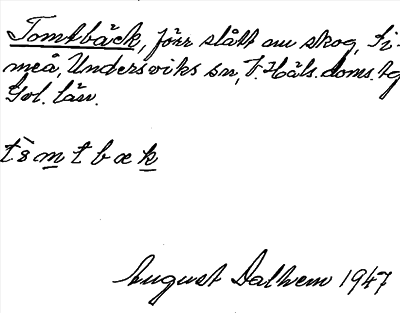 Tomtbäck, förr slått nu skog, Si-
meå, Undersviks sn, V. Häls. doms. tg
Gvl. län.
tòmtbæk
August Dalhem 1947